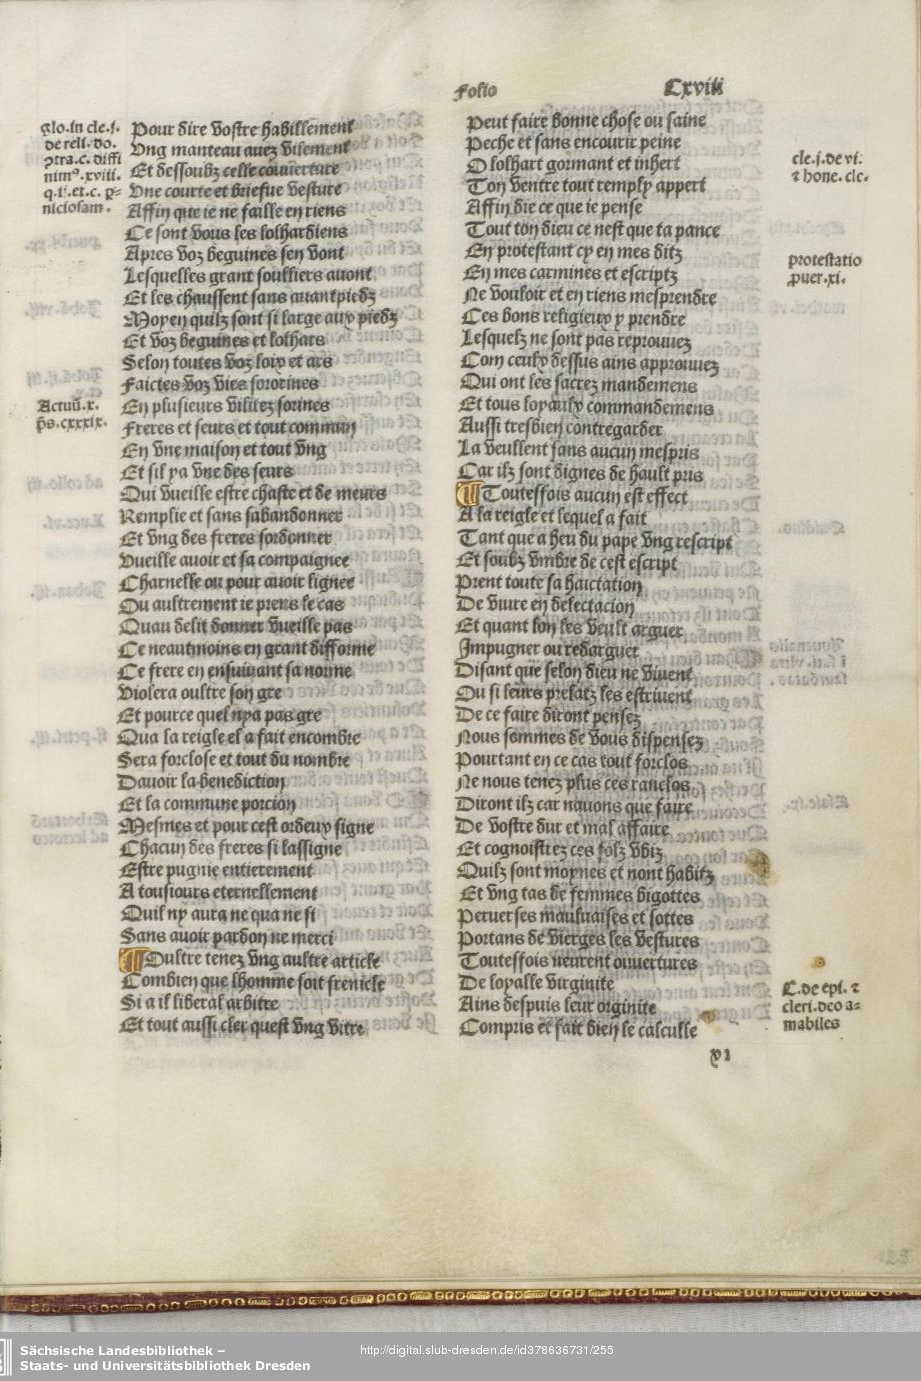 folio Cxviii
glo. in cle. i.
de reli. do.
ɔtra. c. diffi
nim⁹. xviii.
q. ii. et. c. p̱=
niciosam.
Pour dire vostre habillement
Vng manteau auez vilement
Et dessoubz celle couuerture
Vne courte et briefue vesture
Affin que ie ne faille en riens
Ce sont vous les lolhardiens
Apres voz beguines sen vont
Lesquelles grant soulliers auont
Et les chaussent sans auantpiedz
Moyen quilz sont si large aux piedz
Et voz beguines et lolhars
Selon toutes voz loix et ars
Faictes voz vies sororines
En plusieurs vilitez sorines
Freres et seurs et tout commun
En vne maison et tout vng
Et sil ya vne des seurs
Qui vueille estre chaste et de meurs
Remplie et sans sabandonner
Et vng des freres sordonner
Vueille auoir et sa compaignee
Charnelle ou pour auoir lignee
Ou aultrement ie prens le cas
Quau delit donner vueille pas
Ce neautmoins en grant difforme
Ce frere en ensuiuant sa norme
Violera oultre son gre
Et pource quel nya pas gre
Qua la reigle el a fait encombre
Sera forclose et tout du nombre
Dauoir la benediction
Et la commune porcion
Mesmes et pour cest ordeux signe
Chacun des freres si lassigne
Estre pugnie entierement
A tousiours eternellement
Quil ny aura ne qua ne si
Sans auoir pardon ne merci
Oultre tenez vng aultre article
Combien que lhomme soit frenicle
Si a il liberal arbitre
Et tout aussi cler quest vng vitre
Actuū. x.
p̄s. cxxxix.
Peut faire bonne chose ou saine
Peche et sans encourir peine
O lolhart gormant et inhert
Ton ventre tout remply appert
Affin die ce que ie pense
Tout ton dieu ce nest que ta pance
En protestant cy en mes ditz
En mes carmines et escriptz
Ne vouloir et en riens mesprendre
Ces bons religieux y prendre
Lesquelz ne sont pas reprouuez
Com ceulx dessus ains approuuez
Qui ont les sacrez mandemens
Et tous loyaulx commandemens
Aussi tresbien contregarder
La veullent sans aucun mespris
Car ilz sont dignes de hault pris
Toutesfois aucun est effect
A la reigle et lequel a fait
Tant que a heu du pape vng rescript
Et soubz vmbre de cest escript
Prent toute sa haictation
De viure en delectacion
Et quant lon les veult arguer
Impugner ou redarguer
Disant que selon dieu ne viuent
Ou si leurs prelatz les estriuent
De ce faire diront pensez
Nous sommes de vous dispensez
Pourtant en ce cas tout forclos
Ne nous tenez plus ces ranclos
Diront ilz car nauons que faire
De vostre dur et mal affaire
Et cognoistrez ces folz vbiz
Quilz sont moynes et nont habitz
Et vng tas de femmes bigottes
Peruerses mauluaises et sottes
Portans de vierges les vestures
Toutesfois neurent ouuertures
De loyalle virginite
Ains despuis leur orginite
Compris et fait bien le calculle
cle. i. de vi.
⁊ hone. cle.
protestatio
puer. xi.
C. de epi. ⁊
cleri. deo a=
mabiles
Sächsische Landesbibliothek –
Staats- und Universitätsbibliothek Dresden
http://digital.slub-dresden.de/id378636731/255